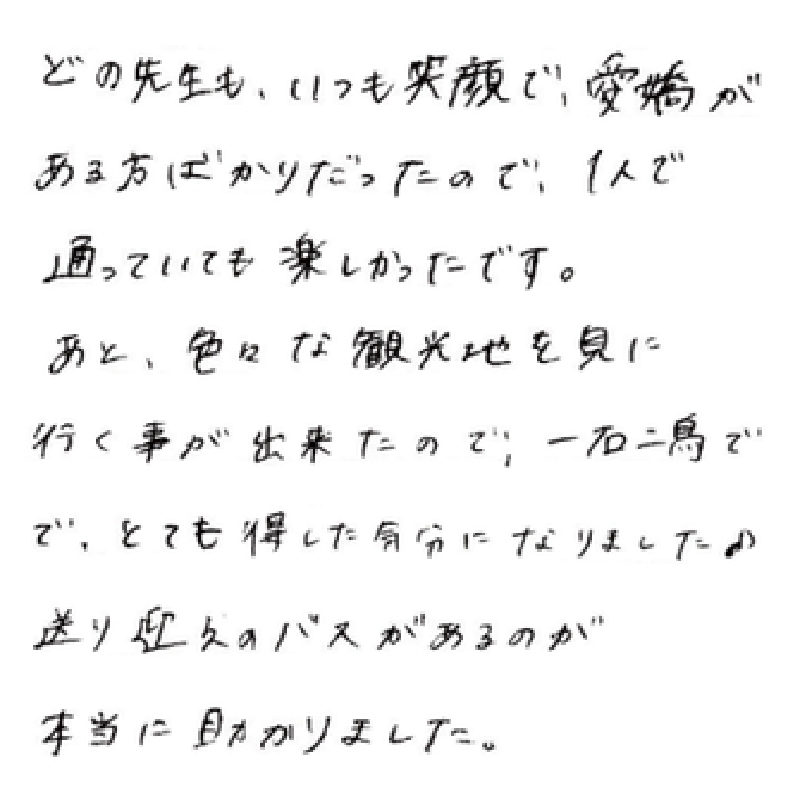 どの先生も、いつも笑顔で、愛嬌が
ある方ばかりだったので、1人で
通っていても楽しかったです。
あと、色々な観光地を見に
行く事が出来たので、一石二鳥で
で、とても得した気分になりました♪
送り迎えのバスがあるのが
本当に助かりました。